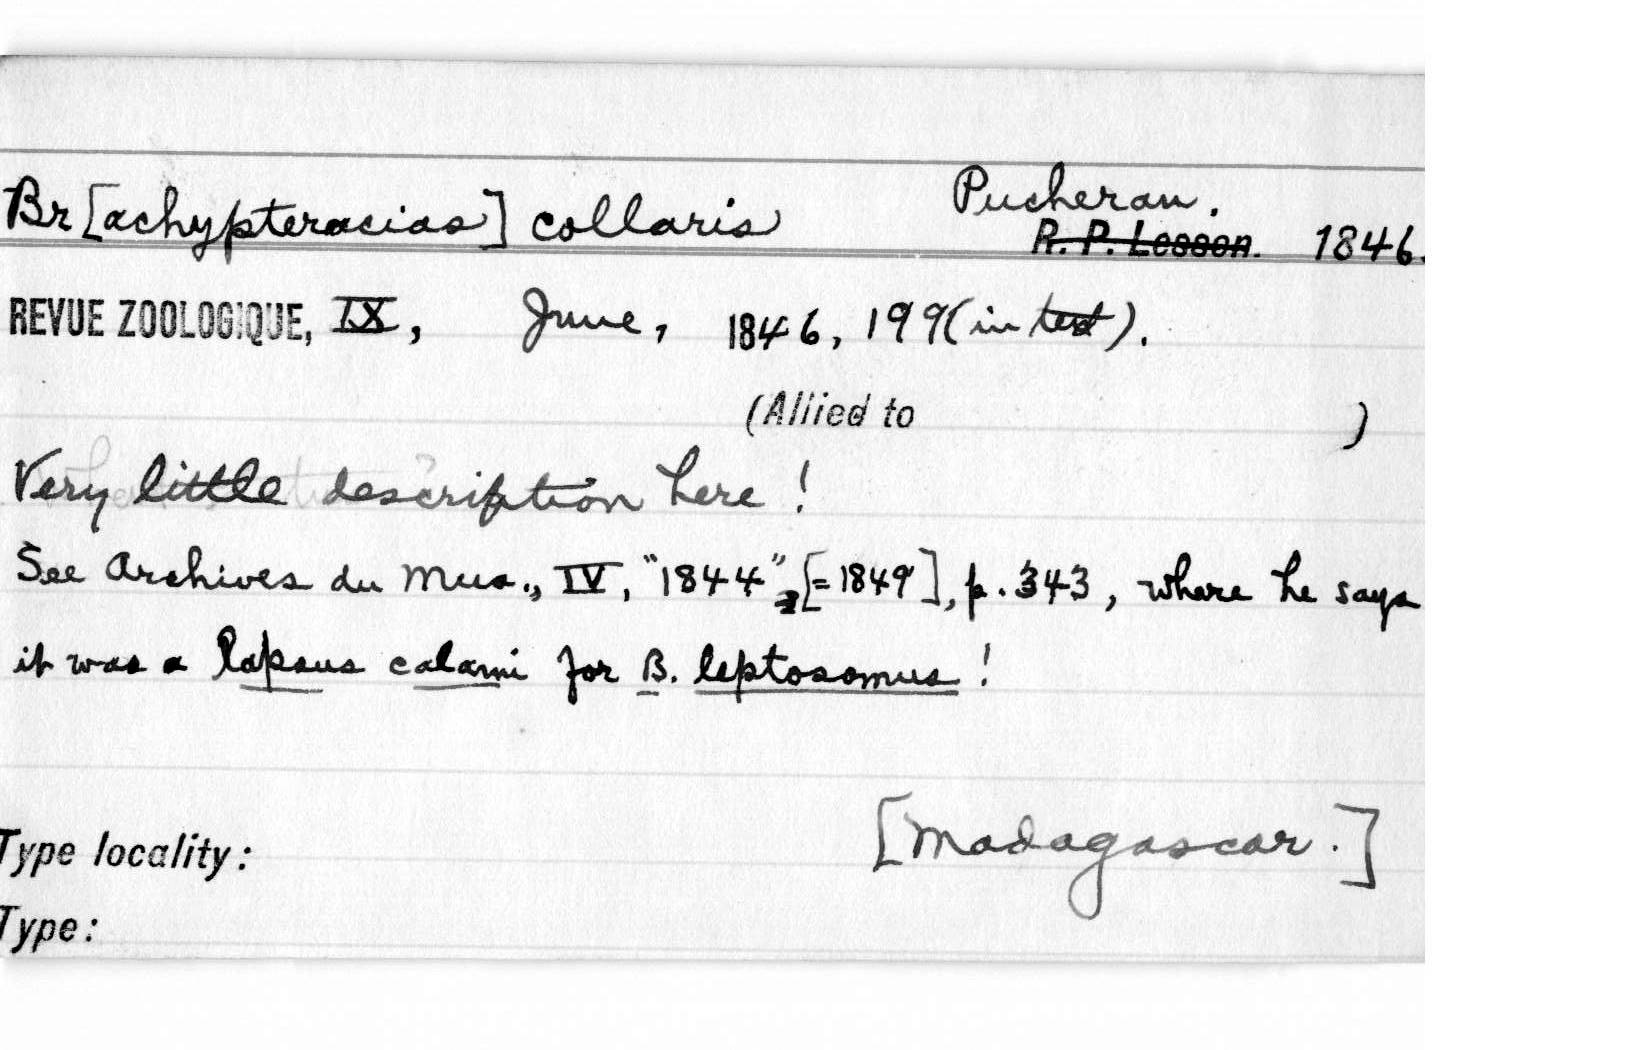 Br[achypteracias] collaris Pucheran.
R. P. Lesson. 1846.
REVUE ZOOLOGIQUE, IX, June, 1846, 199 (in text).
(Allied to )
Very little description here!
See Archives du Mus., IV, "1844", [=1849], p. 343, where he says
it was a lapsus calami for B. leptosomus!
[Madagascar.]
Type locality:
Type: